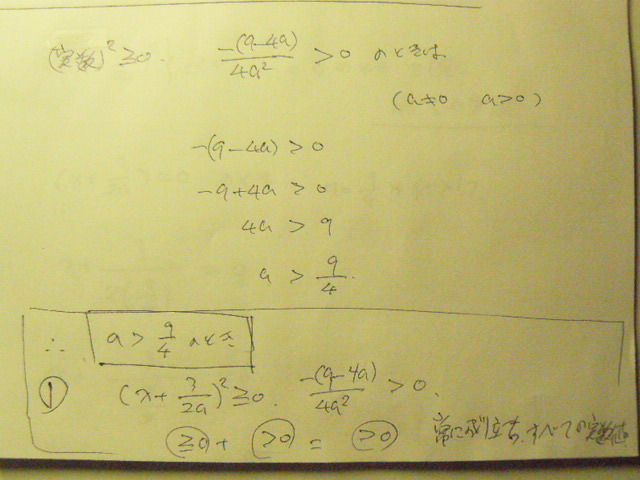 (実数)² ≧0. -(9-4a)/4a² > 0 のときは
(a≠0 a>0)
-(9-4a) > 0
-9+4a > 0
4a > 9
a > 9/4.
∴ a > 9/4 のとき
① (x+3/2a)² ≧0. -(9-4a)/4a² > 0.
≧0 + >0 = >0 常に成り立ち、すべての実数値